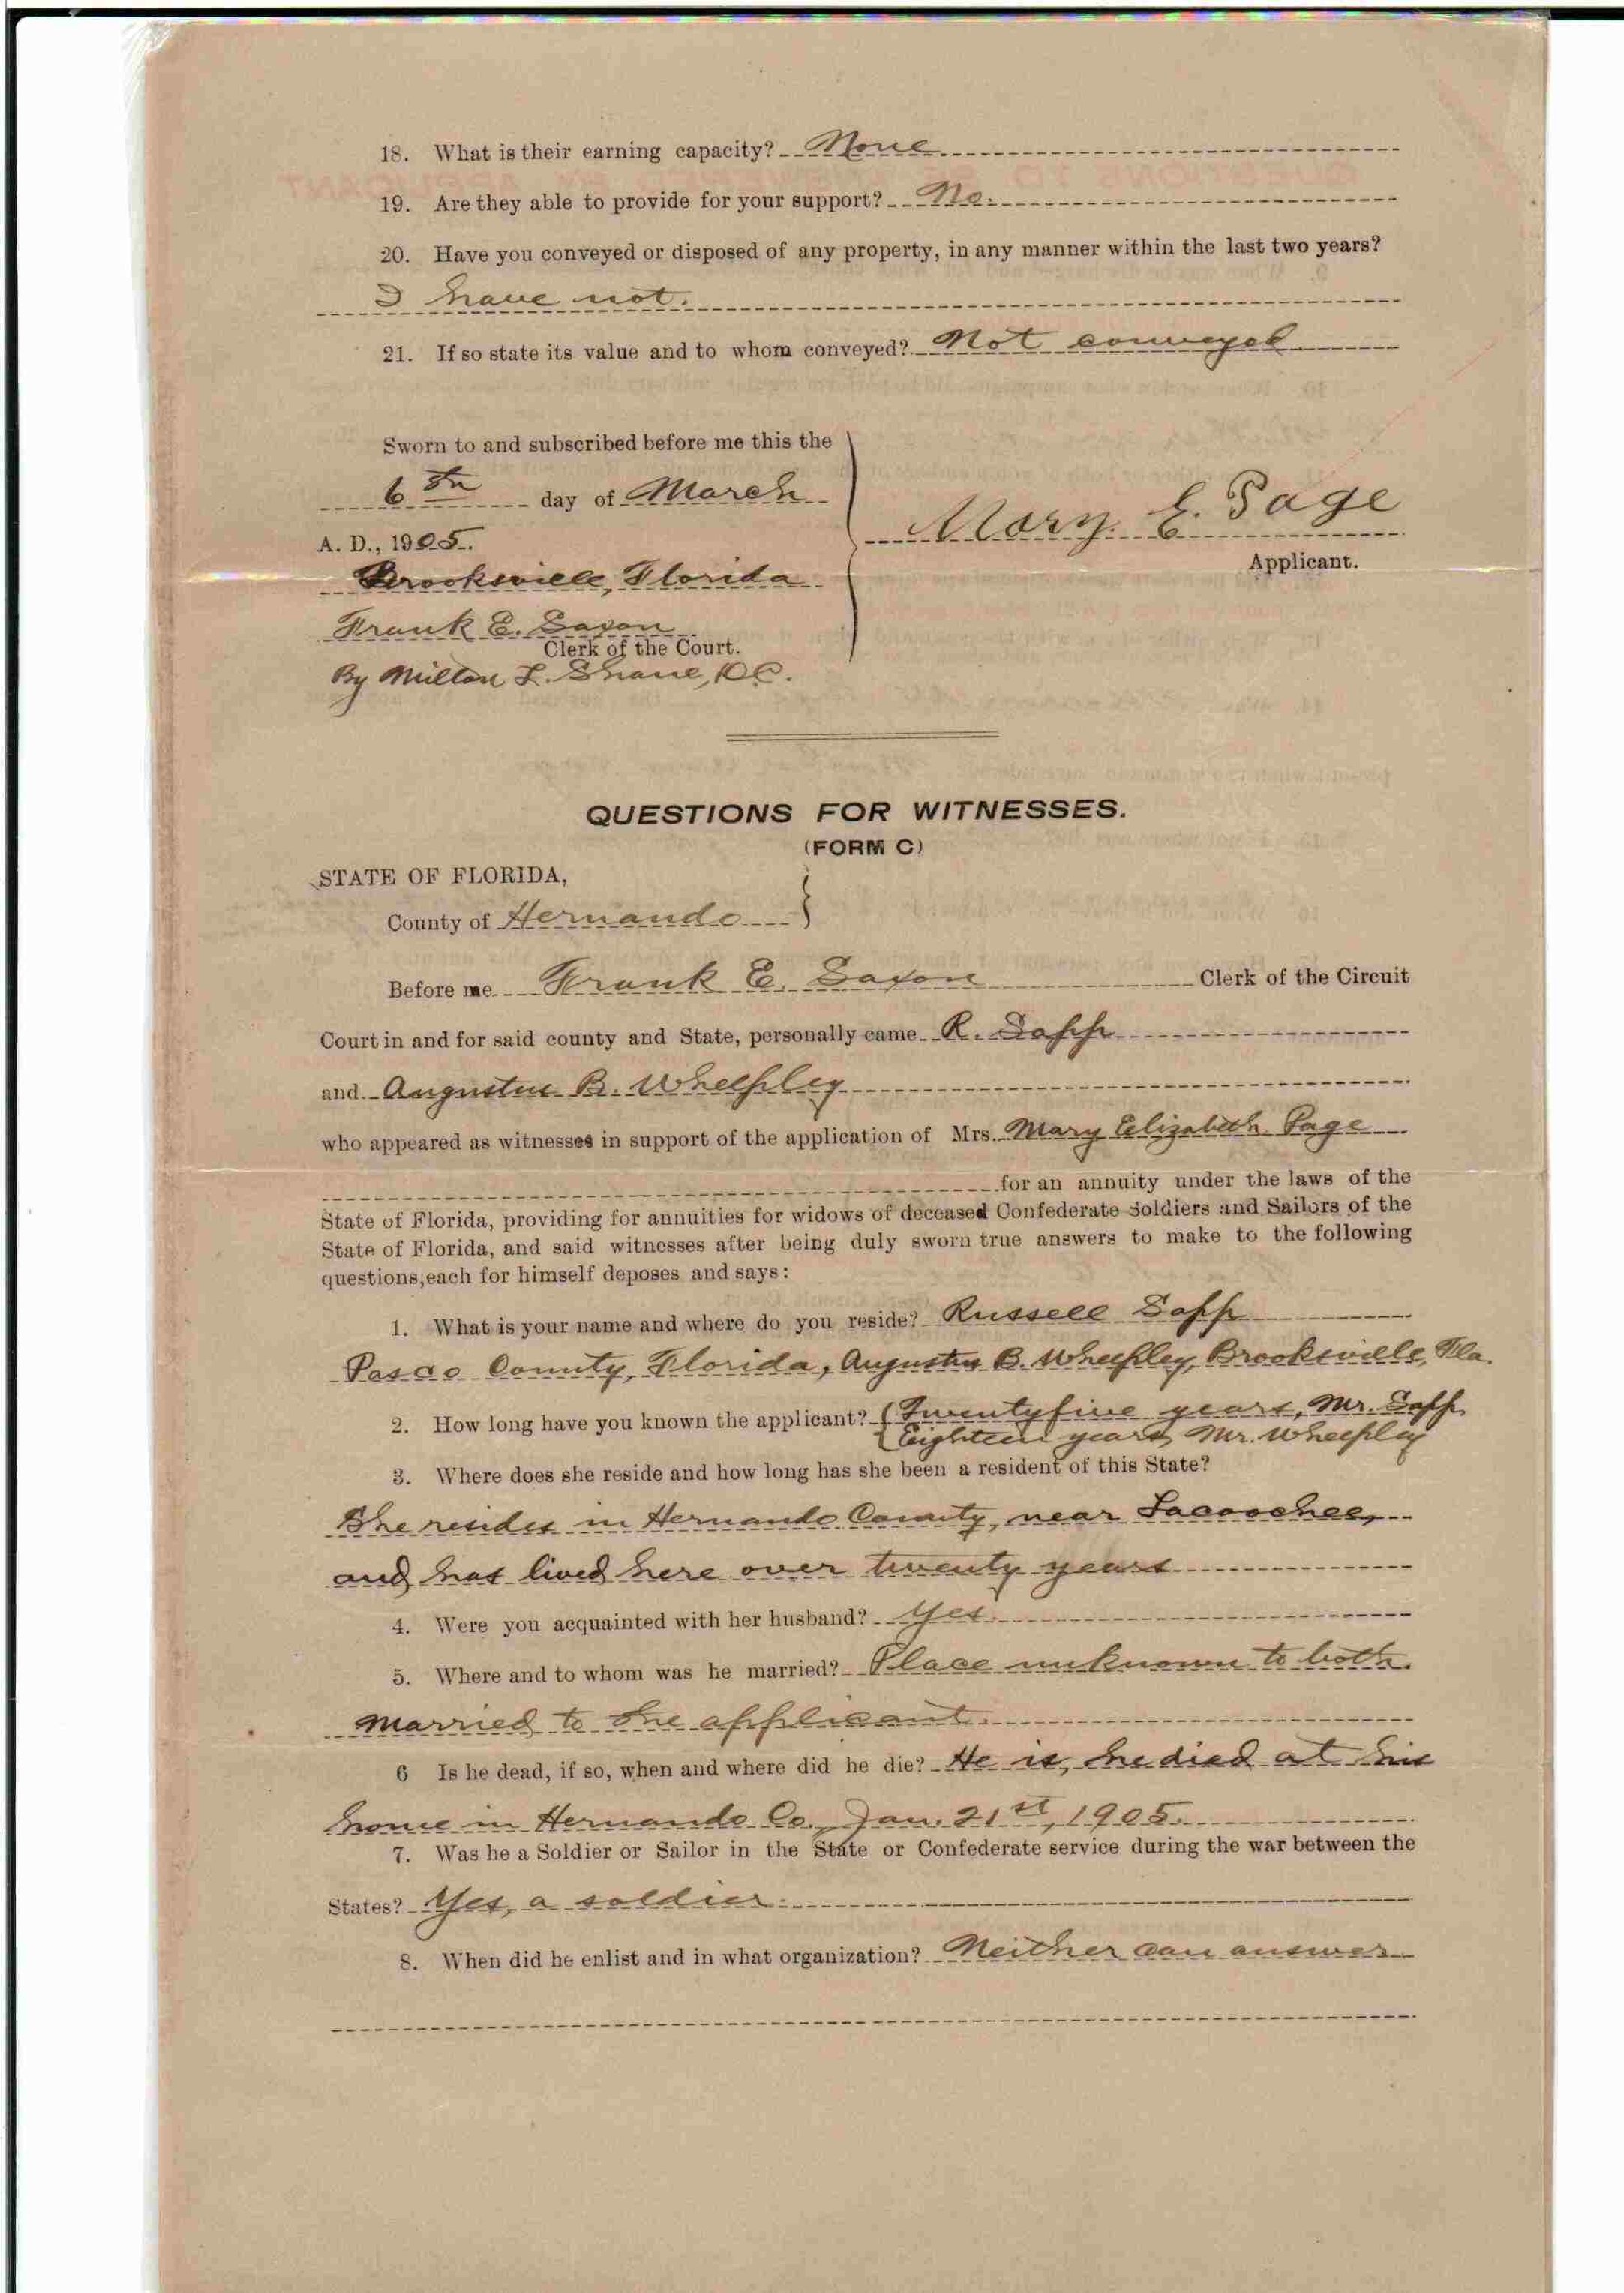 18. What is their earning capacity? None
19. Are they able to provide for your support? No.
20. Have you conveyed or disposed of any property, in any manner within the last two years?
I have not.
21. If so state its value and to whom conveyed? Not conveyed
Sworn to and subscribed before me this the
6th day of March
A. D., 1905.
Brooksville, Florida
Frank E. Saxon
Clerk of the Court.
By Milton L. Shane, D.C.
Mary. E. Page
Applicant.
QUESTIONS FOR WITNESSES.
(FORM C)
STATE OF FLORIDA,
County of Hernando
Before me Frank E. Saxon Clerk of the Circuit
Court in and for said county and State, personally came R. Sapp
and Augustus B. Whelpley
who appeared as witnesses in support of the application of Mrs. Mary Elizabeth Page
for an annuity under the laws of the
State of Florida, providing for annuities for widows of deceased Confederate Soldiers and Sailors of the
State of Florida, and said witnesses after being duly sworn true answers to make to the following
questions,each for himself deposes and says:
1. What is your name and where do you reside? Russell Sapp
Pasco County, Florida, Augustus B. Whelpley, Brooksville, Fla.
2. How long have you known the applicant? Twentyfive years, Mr. Sapp
Eighteen years, Mr. Whelpley
3. Where does she reside and how long has she been a resident of this State?
She resides in Hernando County, near Lacoochee,
and has lived here over twenty years
4. Were you acquainted with her husband? Yes.
5. Where and to whom was he married? Place unknown to both.
Married to the applicant.
6 Is he dead, if so, when and where did he die? He is, he died at his
home in Hernando Co., Jan. 21st, 1905.
7. Was he a Soldier or Sailor in the State or Confederate service during the war between the
States? Yes, a soldier.
8. When did he enlist and in what organization? Neither can answer